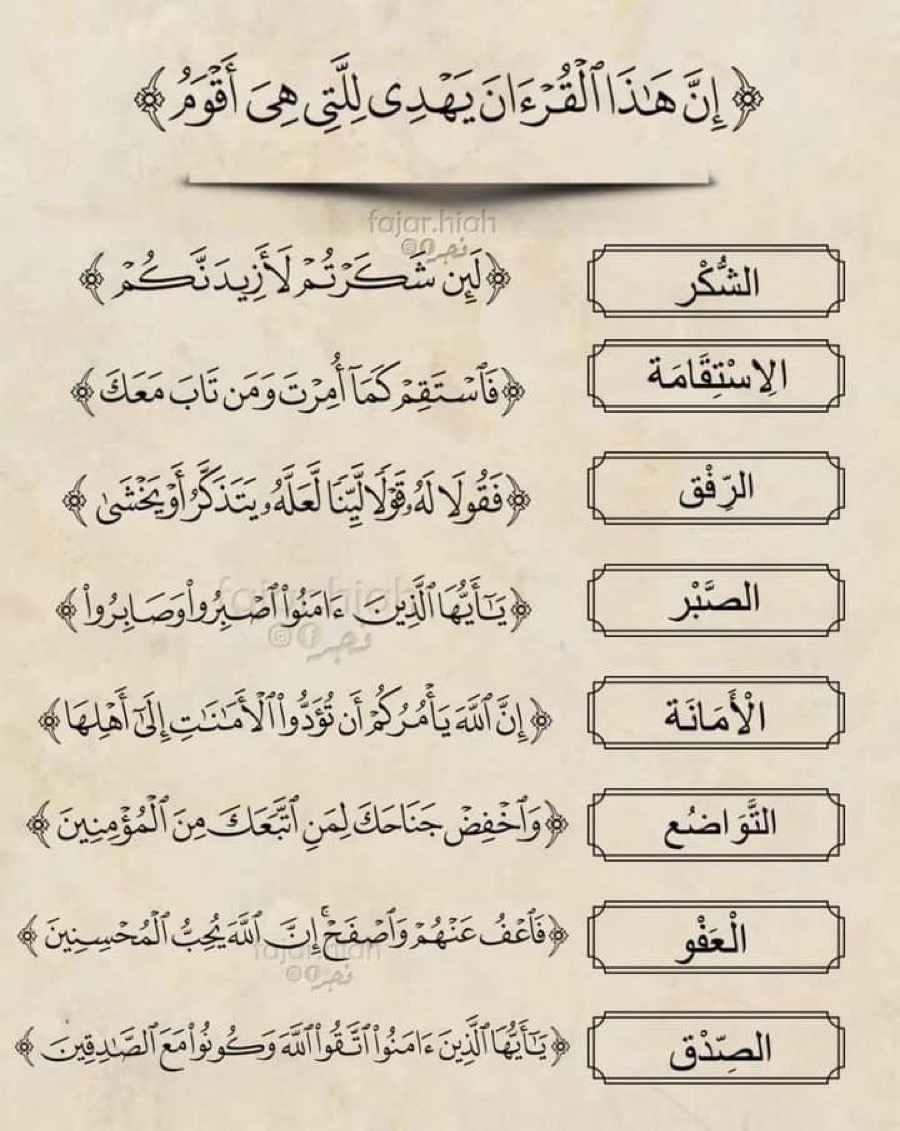 ﴿ إِنَّ هَـٰذَا ٱلْقُرْءَانَ يَهْدِى لِلَّتِى هِىَ أَقْوَمُ ﴾
fajar.hiah
فجر
الشُّكْر ﴿ لَئِن شَكَرْتُمْ لَأَزِيدَنَّكُمْ ﴾
الِاسْتِقَامَة ﴿ فَٱسْتَقِمْ كَمَآ أُمِرْتَ وَمَن تَابَ مَعَكَ ﴾
الرِّفْق ﴿ فَقُولَا لَهُۥ قَوْلًا لَّيِّنًا لَّعَلَّهُۥ يَتَذَكَّرُ أَوْ يَخْشَىٰ ﴾
fajar.hiah
الصَّبْر ﴿ يَـٰٓأَيُّهَا ٱلَّذِينَ ءَامَنُوا۟ ٱصْبِرُوا۟ وَصَابِرُوا۟ ﴾
فجر
الْأَمَانَة ﴿ إِنَّ ٱللَّهَ يَأْمُرُكُمْ أَن تُؤَدُّوا۟ ٱلْأَمَـٰنَـٰتِ إِلَىٰٓ أَهْلِهَا ﴾
التَّوَاضُع ﴿ وَٱخْفِضْ جَنَاحَكَ لِمَنِ ٱتَّبَعَكَ مِنَ ٱلْمُؤْمِنِينَ ﴾
الْعَفْو ﴿ فَٱعْفُ عَنْهُمْ وَٱصْفَحْ ۚ إِنَّ ٱللَّهَ يُحِبُّ ٱلْمُحْسِنِينَ ﴾
fajar.hiah
فجر
الصِّدْق ﴿ يَـٰٓأَيُّهَا ٱلَّذِينَ ءَامَنُوا۟ ٱتَّقُوا۟ ٱللَّهَ وَكُونُوا۟ مَعَ ٱلصَّـٰدِقِينَ ﴾